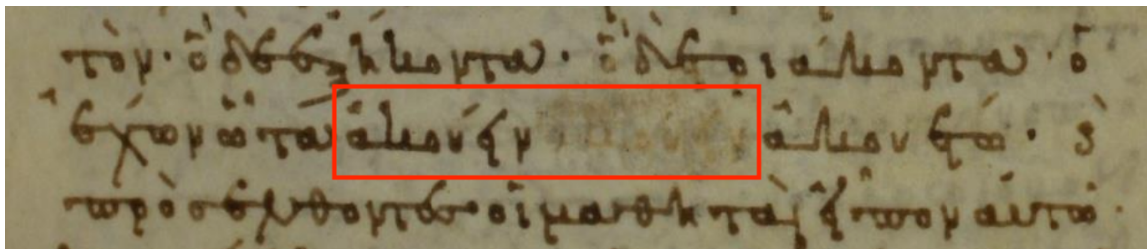 τὸν· ὁ δὲ ἑξήκοντα· ὁ δὲ τριάκοντα· ὁ
ἔχων ὦτα ἀκούειν ἀκουέτω· καὶ
προσελθόντες οἱ μαθηταὶ εἶπον αὐτῶ·